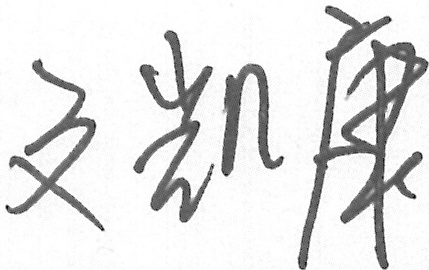 文凯康